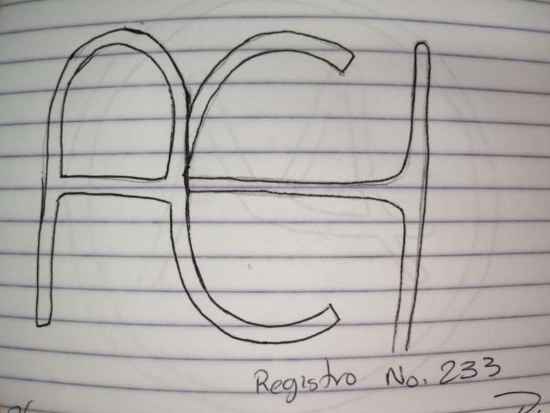 ACH
Registro No. 233